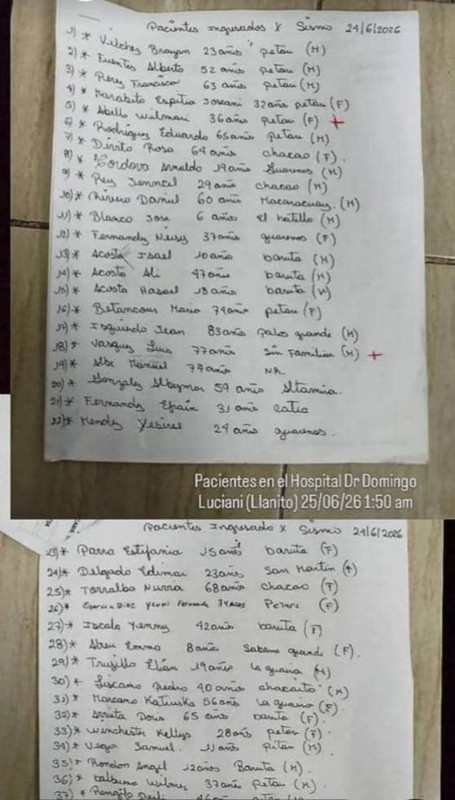 Pacientes Ingresados X Sismo 24/6/2026
1)* Vilches Brayan 23 años petare (M)
2)* Fuentes Alberto 52 años petare (M)
3)* Perez Francisco 63 años petare (M)
4)* Espitia 32 años petare (F)
5)* Abello Wilmari 36 años petare (F) +
6)* Rodriguez Eduardo 65 años petare (M)
7)* Dirito Rosa 64 años chacao (F).
8)* Cordova Arnaldo 19 años Guarenas (M)
9)* Rey 29 años chacao (M)
10)* Rivero Daniel 60 años Macaracuay. (M)
11)* Blanco Jose 6 años el hatillo (M)
12)* Fernandez Neisy 37 años guarenas (F)
13)* Acosta Isael 10 años baruta (M)
14)* Acosta Ali 47 años baruta (M)
15)* Acosta 15 años baruta (M)
16)* Betancour Maria 74 años petare (F)
17)* Izquierdo Jean 83 años palos grande (M)
18)* Vasquez Luis 77 años Sin Familiar (M) +
19)* Manuel 74 años N.A.
20)* Gonzalez 59 años Altamira.
21)* Fernandez Efrain 31 años catia
22)* Mendez Yesiree 24 años guarenas.
Pacientes en el Hospital Dr Domingo
Luciani (Llanito) 25/06/26 1:50 am
Pacientes Ingresado X Sismo 24/6/2026
23)* Parra Estefania 15 años baruta (F)
24)* Delgado Edimar 23 años San Martin (F)
25)* Torralba Nuria 68 años chacao (F)
26)* Yenni 34 años Petare (F)
27)* Escala Yenny 42 años baruta (F)
28)* Abreu Emma 8 años Sabana grande (F).
29)* Trujillo Elian 19 años la guaira (M)
30)* Liscano Pedro 40 años chacaito (M)
31)* Marcano Katiuska 56 años la guaira (F)
32)* Arrieta Dora 65 años baruta (F).
33)* Winchester Kellys 28 años petare (F)
34)* Vega Samuel. 11 años petare (M)
35)* Rondon Angel 12 años Baruta (M).
36)* Wilmer 37 años petare (M)
37)* Rengifo 46 años